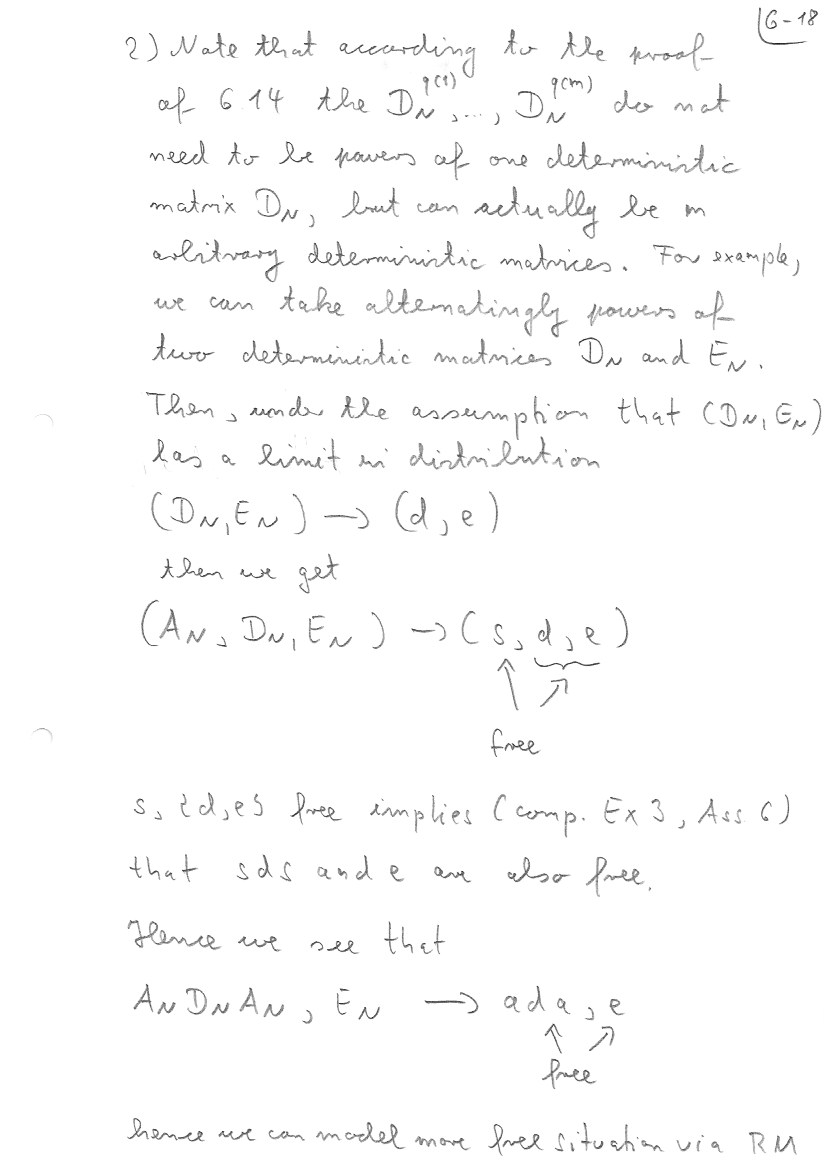 6-18
2) Note that according to the proof
of 6.14 the D_N^{q(1)}, ..., D_N^{q(m)} do not
need to be powers of one deterministic
matrix D_N, but can actually be m
arbitrary deterministic matrices. For example,
we can take alternatingly powers of
two deterministic matrices D_N and E_N.
Then, under the assumption that (D_N, E_N)
has a limit in distribution
(D_N, E_N) → (d, e)
then we get
(A_N, D_N, E_N) → (s, d, e)
free
s, {d,e} free implies (comp. Ex 3, Ass. 6)
that sds and e are also free.
Hence we see that
A_N D_N A_N, E_N → ada, e
free
hence we can model more free situation via RM